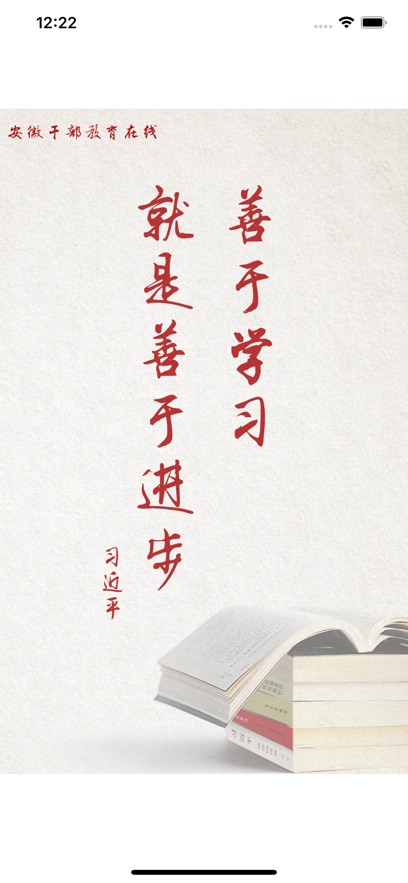 12:22
安徽干部教育在线
善于学习
就是善于进步
习近平